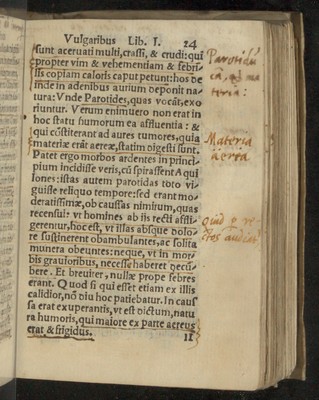 Vulgaribus Lib. I. 24
sunt aceruati multi, crassi, & crudi: qui
propter vim & vehementiam & febri-
lis copiam caloris caput petunt: hos de
inde in adenibus aurium deponit na-
tura: Vnde Parotides, quas vocāt, exo
riuntur. Verum enimuero non erat in
hoc statu humorum ea affluentia: &
qui cōstiterant ad aures tumores, quia
materiæ erāt aereæ, statim digesti sunt.
Patet ergo morbos ardentes in princi-
pium incidisse veris, cū spirassent Aqui
lones: istas autem parotidas toto vi-
guisse reliquo tempore: sed erant mo-
deratissimæ, ob caussas nimirum, quas
recensui: vt homines ab iis recti affli-
gerentur, hoc est, vt illas absque dolo-
re sustinerent obambulantes, ac solita
munera obeuntes: neque, vt in mor-
bis grauioribus, necesse haberet decū
bere. Et breuiter, nullæ prope febres
erant. Quod si qui esset etiam ex illis
calidior, nō diu hoc patiebatur. In caus
sa erat exuperantis, vt est dictum, natu
ra humoris, qui maiore ex parte aereus
erat & frigidus.
Parotidū
Materia
aerea